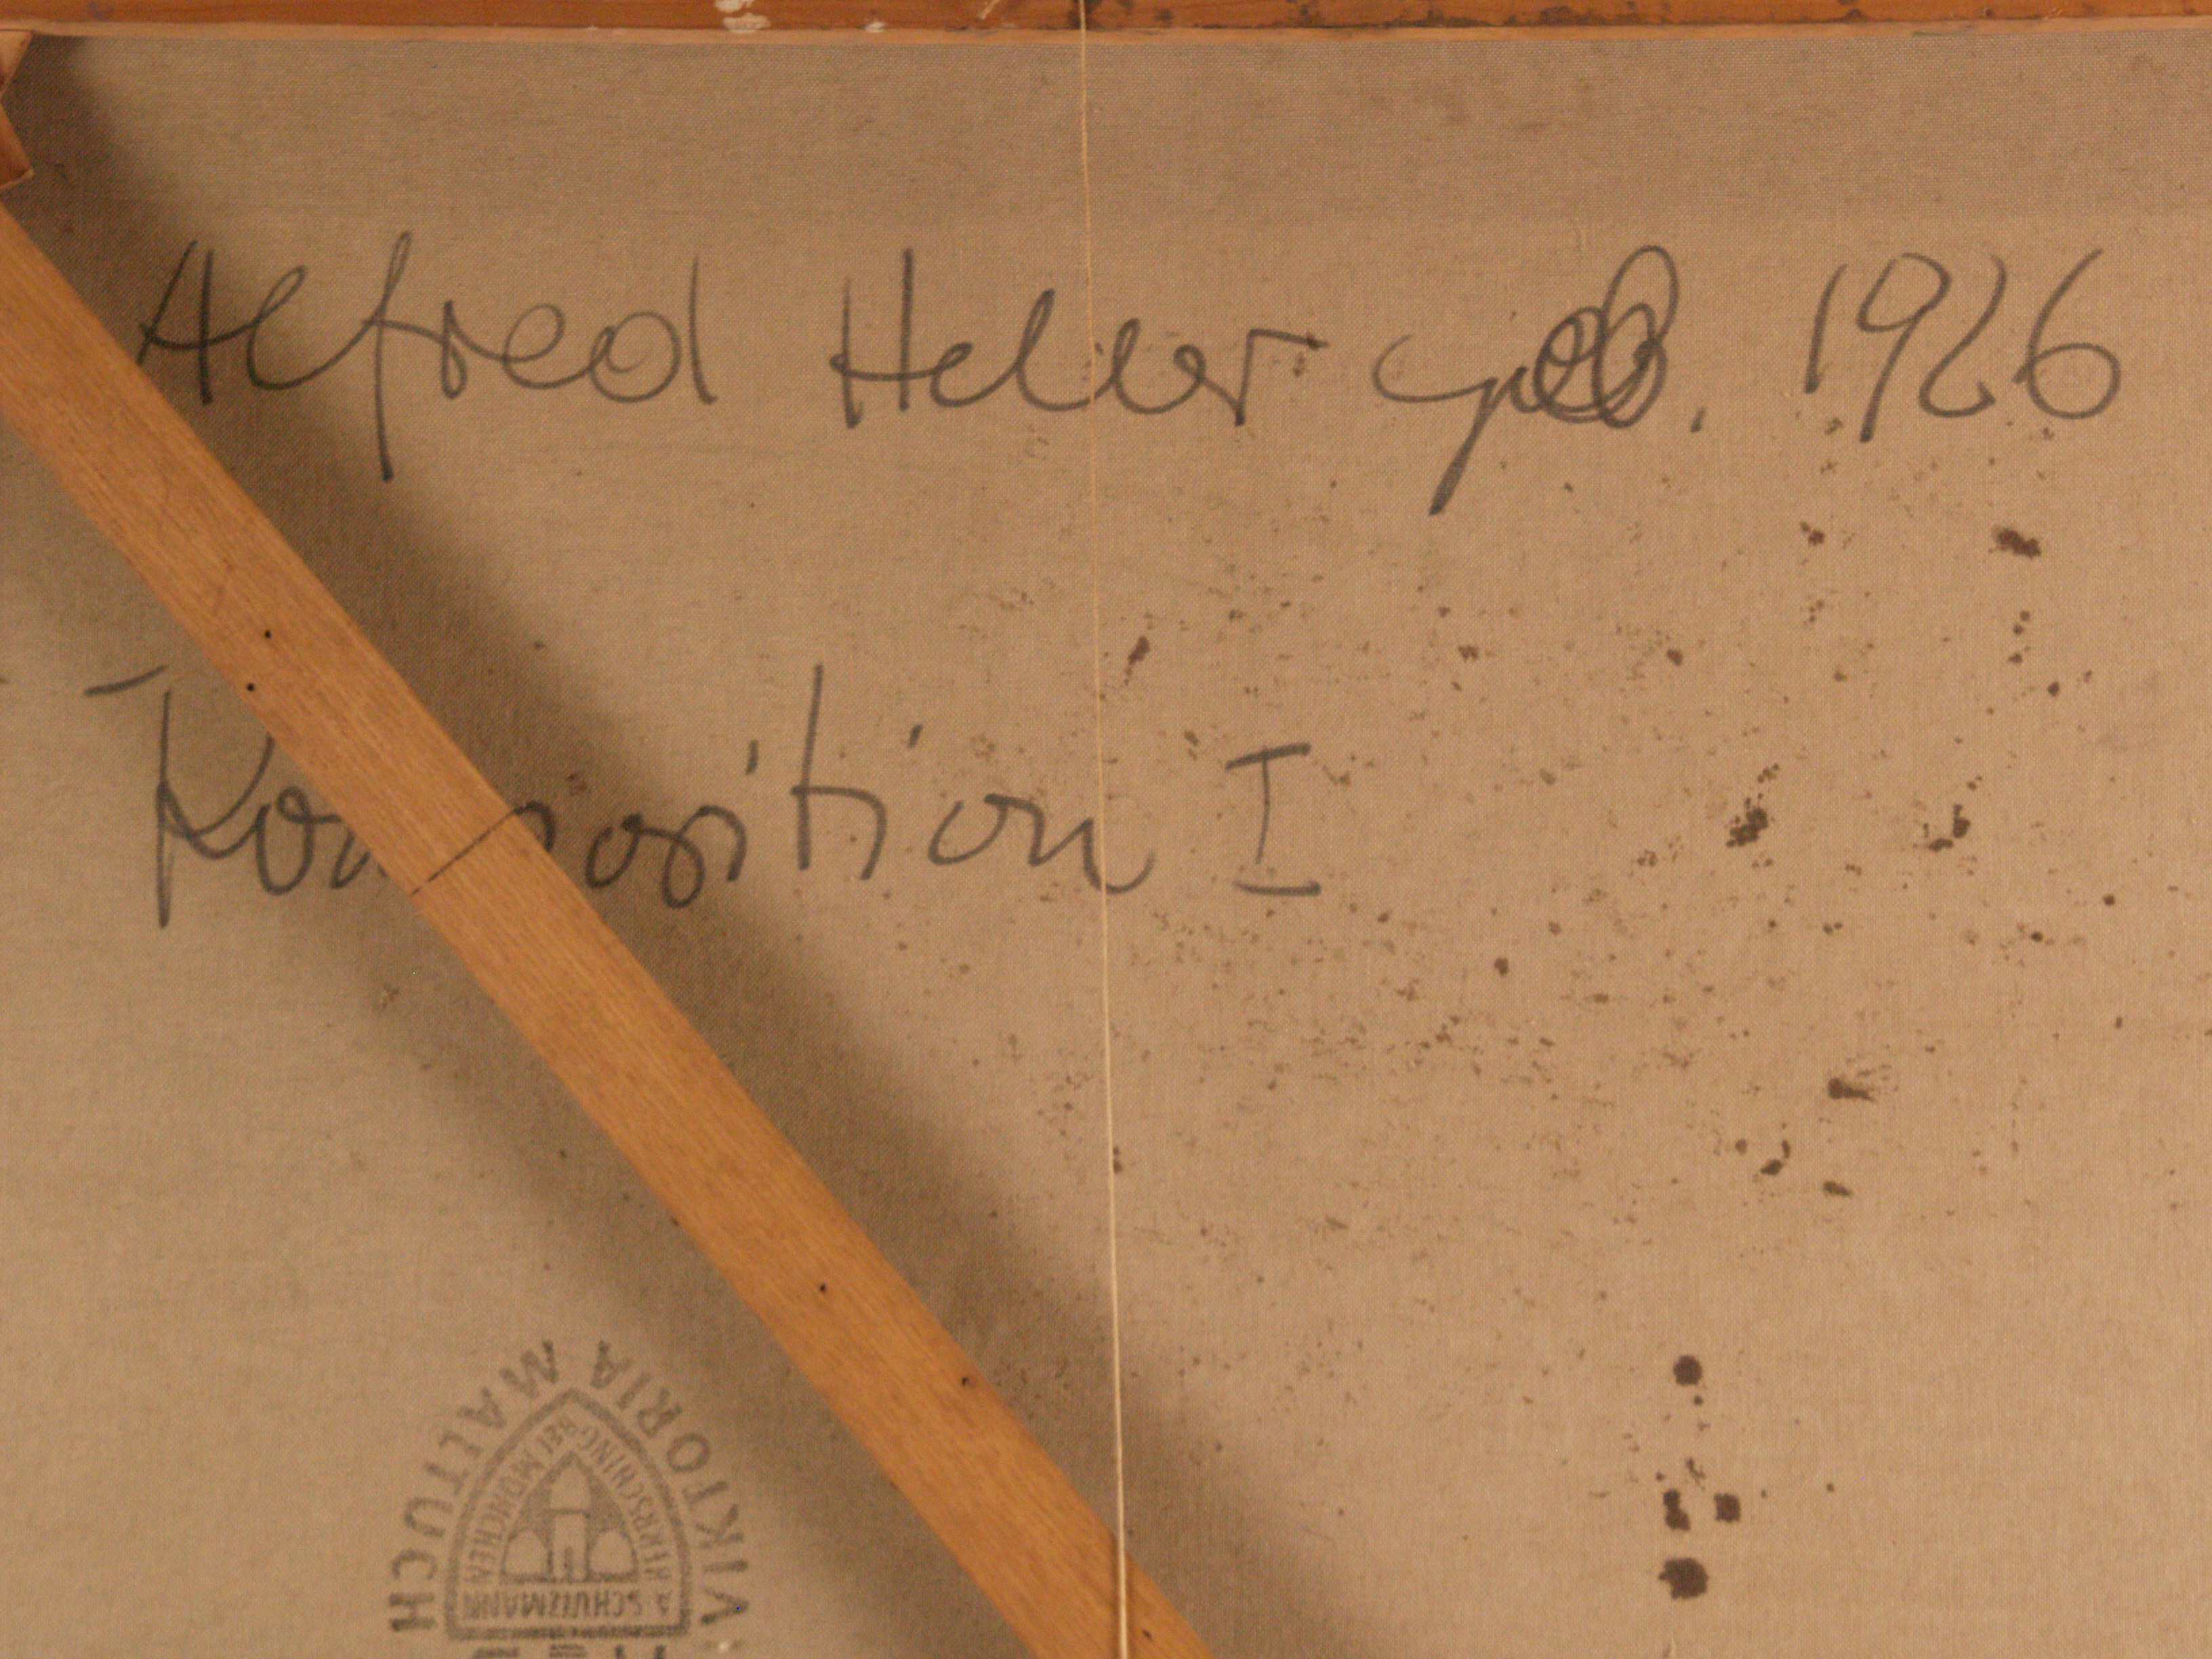 Alfred Heller geb. 1926
Komposition I
VIKTORIA MALTUCH
HERRSCHING BEI MÜNCHEN
A SCHUTZMANN